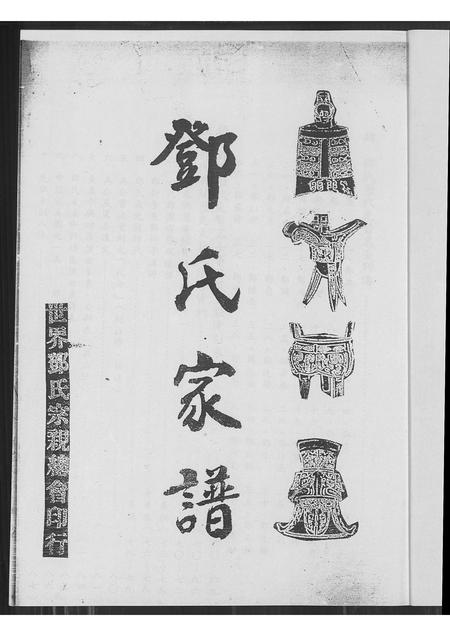 鄧氏家譜
世界鄧氏宗親總會印行